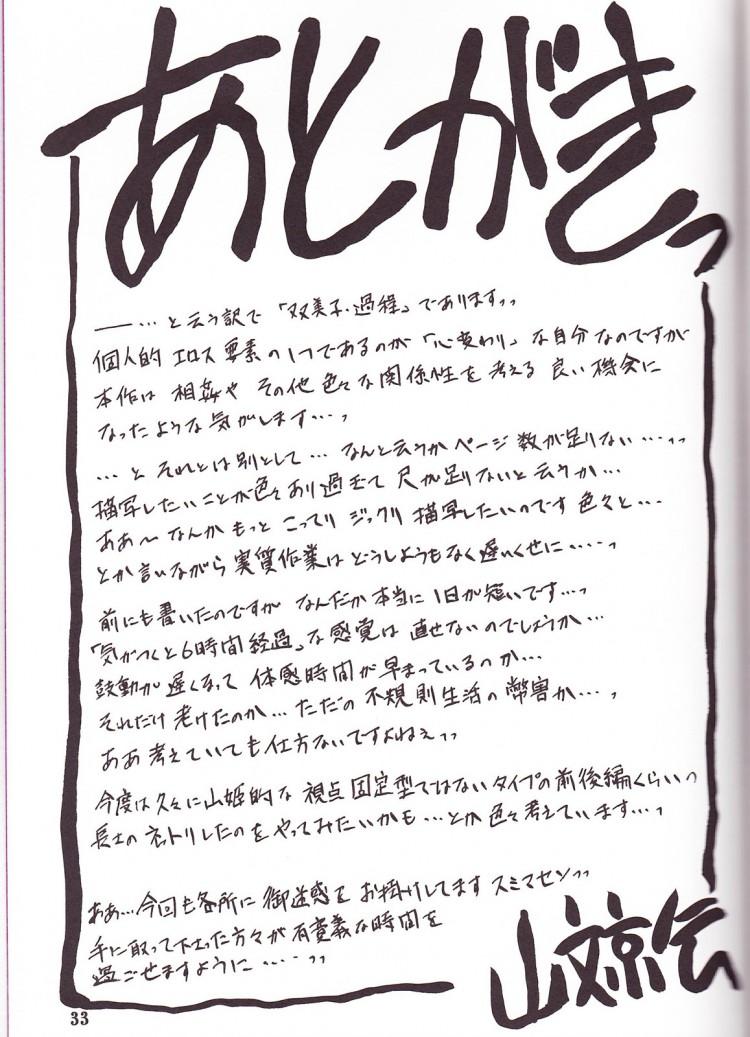 あとがきっ
――…と云う訳で「双美子・過程」でありますッッ
個人的エロス要素の1つであるのが「心変わり」な自分なのですが
本作は 相姦や その他 色々な関係性を 考える 良い 機会に
なったような気がします…っ
…と それとは別として… なんと云うか ページ数が足りない…ッッ
描写したいことが色々あり過ぎて 尺が足りないと云うか…
ああ～なんか もっと こってり ジックリ 描写したいのです 色々と…
とか言いながら 実質作業は どうしようもなく 遅いくせに……っ
前にも書いたのですが なんだか本当に 1日が短いです…っ
「気がつくと6時間経過」な感覚は 直せないのでしょうか…
鼓動が 遅くなって 体感時間が早まっているのか…
それだけ 老けたのか…ただの 不規則生活の 弊害か…っ
ああ 考えていても仕方ないですよねぇッッ
今度は久々に山姫的な 視点固定型ではないタイプの前後編くらいっ
長士の ネットリしたのを やってみたいかも…とか 色々 考えています…っ
ああ…今回も各所に 御迷惑を お掛けしてます スミマセンッッ
手に取って下さった方々が 有意義な時間を
過ごせますように……ッッ
山文京伝
33